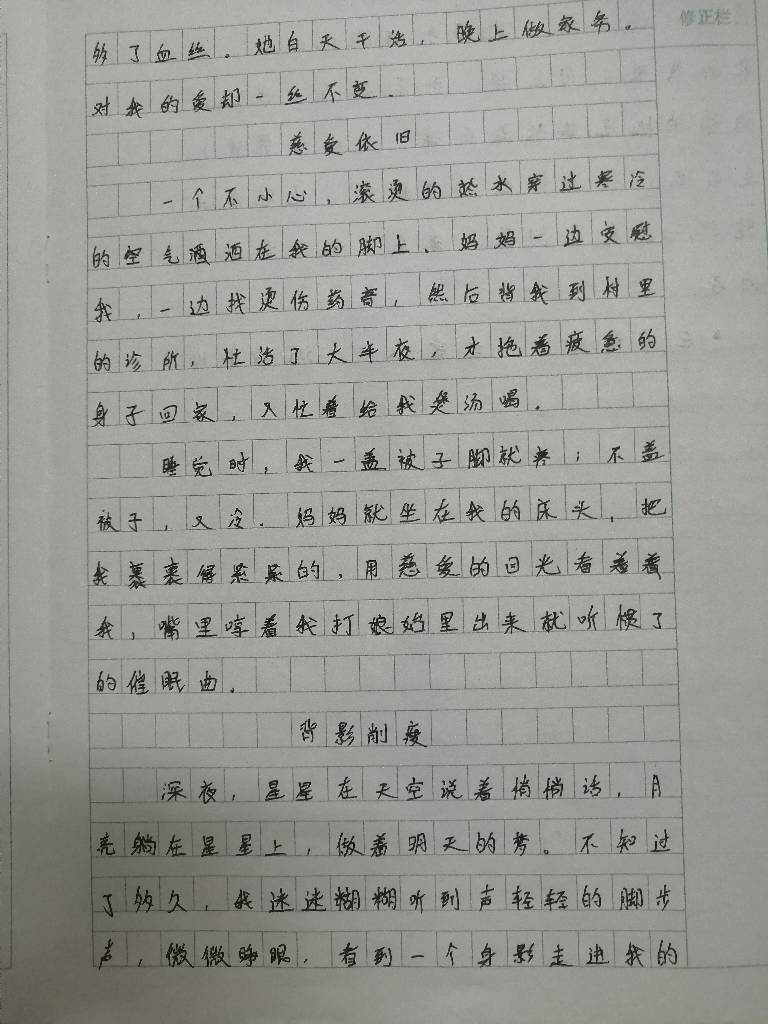 修正栏
多了血丝。她白天干活，晚上做家务。
对我的爱却一丝不变。
慈爱依旧
一个不小心，滚烫的热水穿过寒冷
的空气洒洒在我的脚上、妈妈一边安慰
我，一边找烫伤药膏，然后背我到村里
的诊所，忙活了大半夜，才拖着疲惫的
身子回家，又忙着给我煲汤喝。
睡觉时，我一盖被子脚就疼；不盖
被子，又冷．妈妈就坐在我的床头，把
我裹裹得紧紧的，用慈爱的目光看着着
我，嘴里哼着我打娘胎里出来就听惯了
的催眠曲。
背影削瘦
深夜，星星在天空说着悄悄话，月
亮躺在星星上，做着明天的梦。不知过
了多久，我迷迷糊糊听到声轻轻的脚步
声，微微睁眼，看到一个身影走进我的